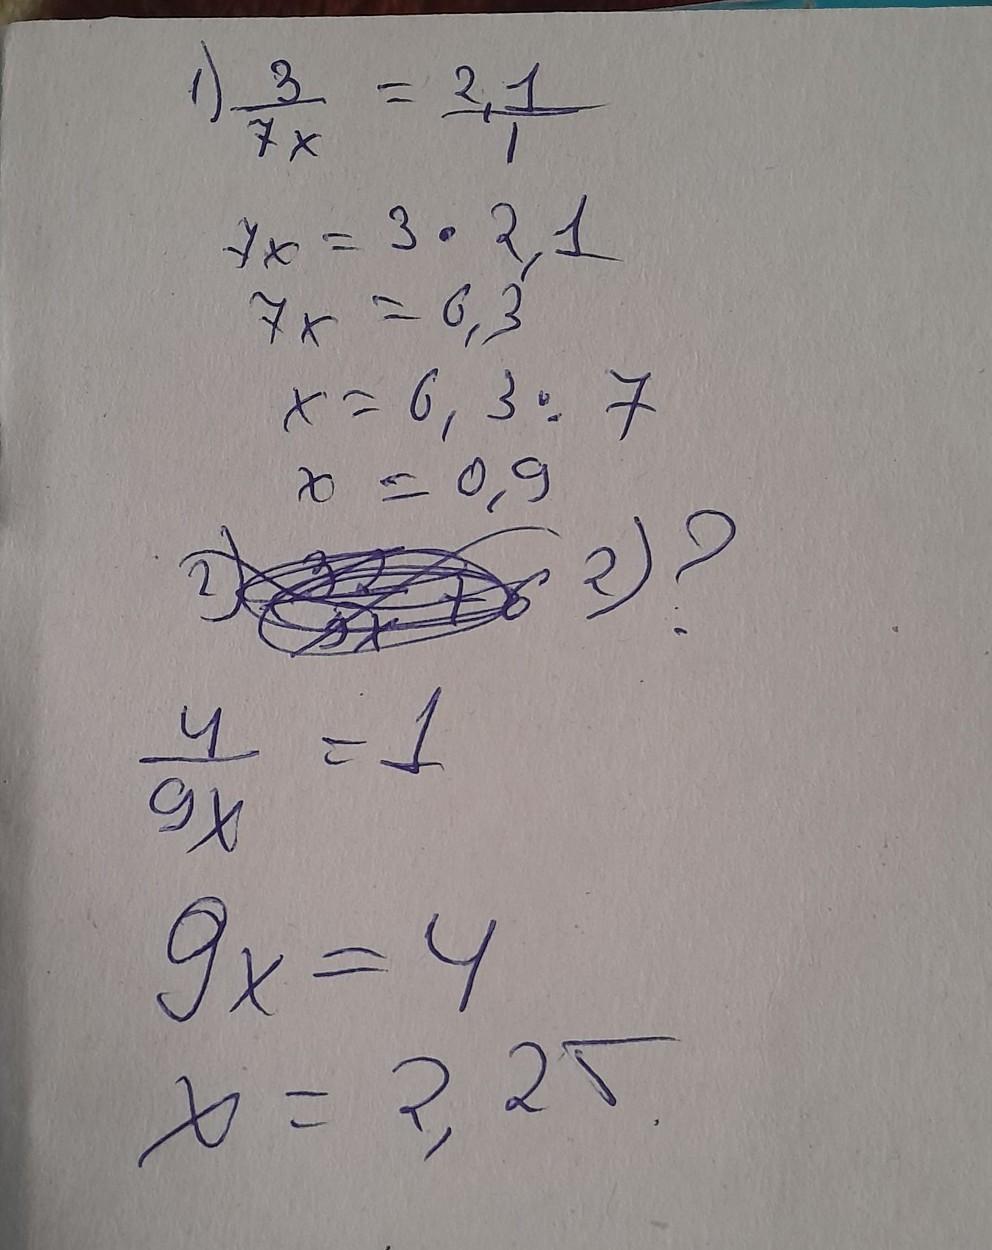 1) 3/7x = 2,1/1
7x = 3 · 2,1
7x = 6,3
x = 6,3 : 7
x = 0,9
2) 2) ?
4/9x = 1
9x = 4
x = 2,25